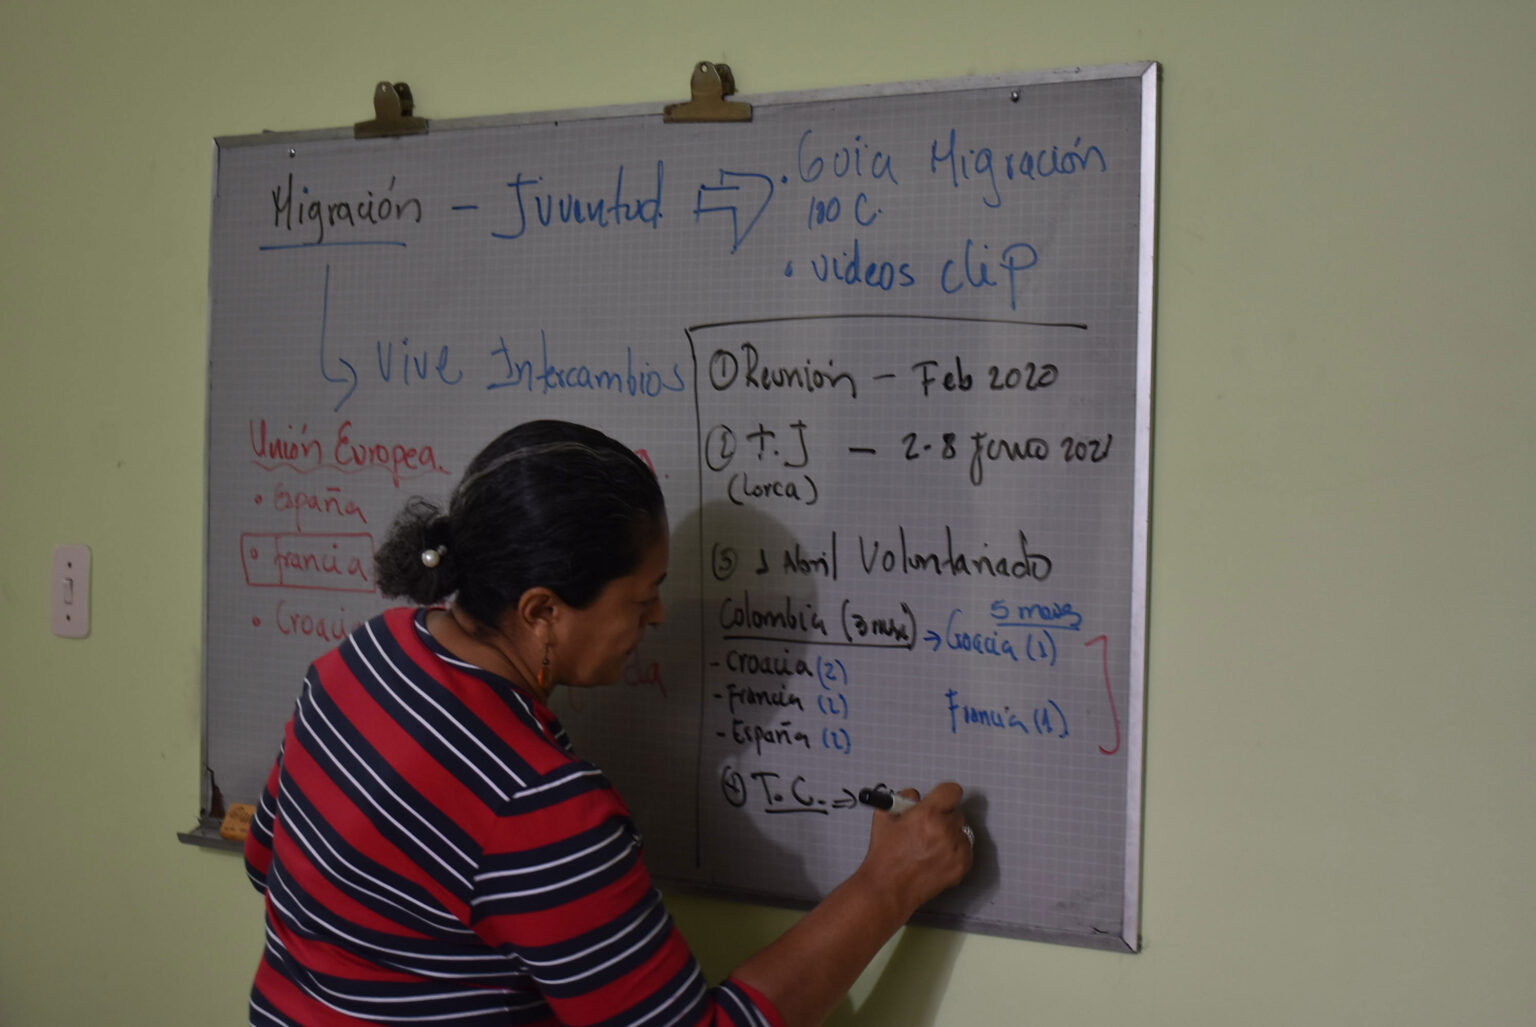 Migración - Juventud
· Guia Migración
100 C.
· videos clip
Vive Intercambios
Unión Europea.
· España
· francia
· Croacia
① Reunión - Feb 2020
② T.J - 2-8 Junio 2021
(Lorca)
③ 1 Abril Voluntariado
Colombia (3 mese)
- Croacia (2)
- Francia (2)
- España (2)
5 meses
→ Croacia (1)
Francia (1)
④ T. C. ⇒